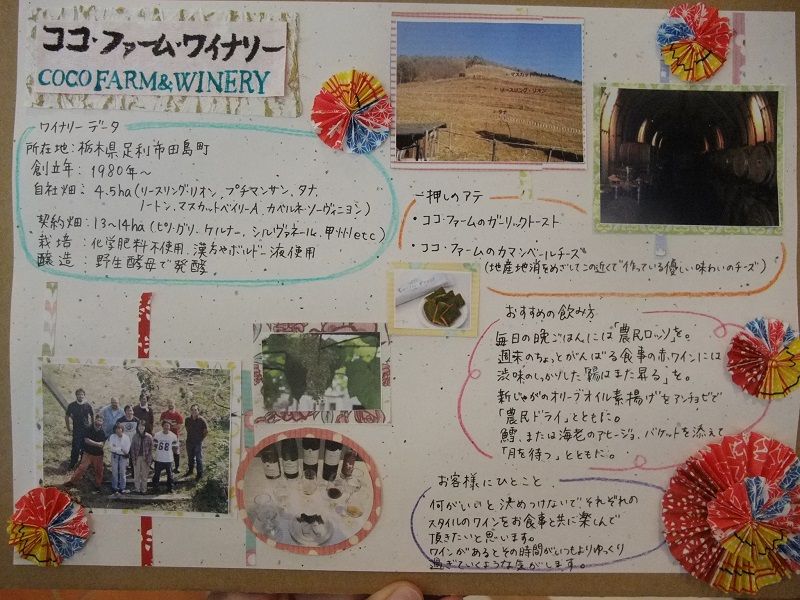 ココ・ファーム・ワイナリー
COCO FARM & WINERY
ワイナリーデータ
所在地：栃木県足利市田島町
創立年：1980年～
自社畑：4.5ha（リースリング・リオン、プチマンサン、タナ、
ノートン、マスカットベイリーA、カベルネ・ソーヴィニヨン）
契約畑：13～14ha（ピノ・グリ、ケルナー、シルヴァネール、甲州etc）
栽培：化学肥料不使用、漢方やボルドー液使用
醸造：野生酵母で発酵
マスカット
リースリング・リオン
タナ
一押しのアテ
・ココ・ファームのガーリックトースト
・ココ・ファームのカマンベールチーズ
（地産地消をめざしてこの近くで作っている優しい味わいのチーズ）
おすすめの飲み方
毎日の晩ごはんには「農民ロッソ」を。
週末のちょっとがんばる食事の赤ワインには
渋味のしっかりした「陽はまた昇る」を。
新じゃがのオリーブオイル素揚げをアンチョビで
「農民ドライ」とともに。
鱈、または海老のアヒージョ、バゲットを添えて
「月を待つ」とともに。
お客様にひとこと
何がいいと決めつけないでそれぞれの
スタイルのワインをお食事と共に楽しんで
頂きたいと思います。
ワインがあるとその時間がいつもよりゆっくり
過ぎていくような気がします。